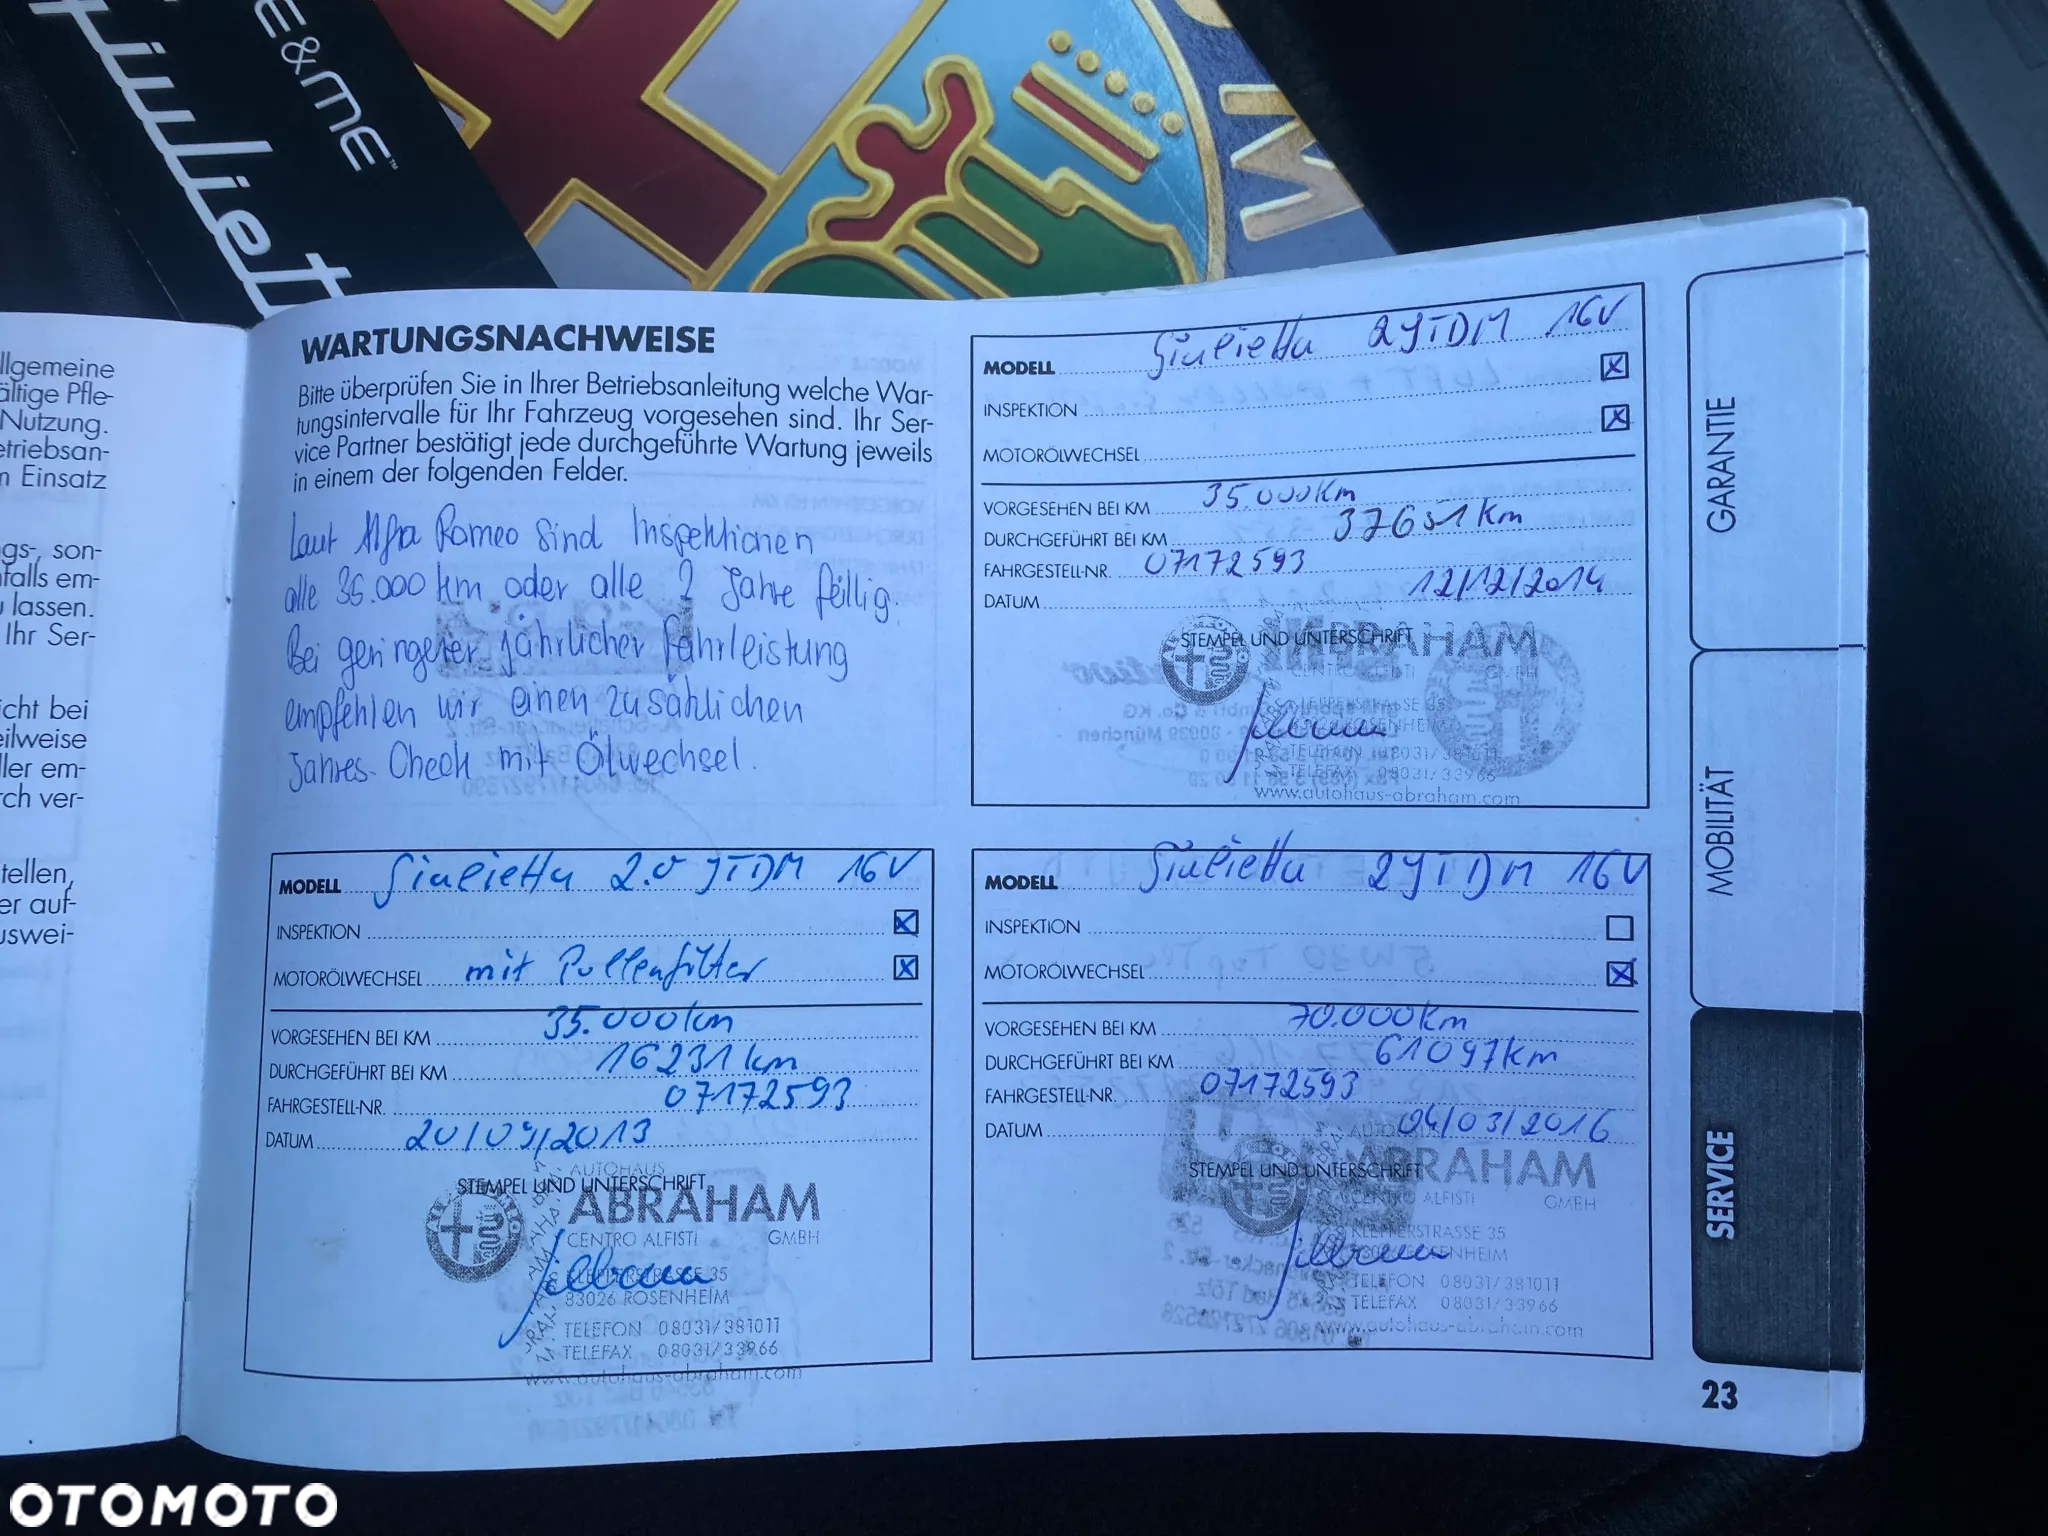 E&ME™
Giuliett
M
llgemeine
ältige Pfle-
Nutzung.
etriebsan-
m Einsatz
gs-, son-
nfalls em-
u lassen.
Ihr Ser-
icht bei
eilweise
ller em-
rch ver-
tellen,
er auf-
uswei-
WARTUNGSNACHWEISE
Bitte überprüfen Sie in Ihrer Betriebsanleitung welche War-
tungsintervalle für Ihr Fahrzeug vorgesehen sind. Ihr Ser-
vice Partner bestätigt jede durchgeführte Wartung jeweils
in einem der folgenden Felder.
Laut Alfa Romeo sind Inspektionen
alle 35.000 km oder alle 2 Jahre fällig.
Bei geringerer jährlicher Fahrleistung
empfehlen wir einen zusätzlichen
Jahres-Check mit Ölwechsel.
MODELL Giulietta 2 JTDM 16V
INSPEKTION X
MOTORÖLWECHSEL X
VORGESEHEN BEI KM 35.000km
DURCHGEFÜHRT BEI KM 37651km
FAHRGESTELL-NR. 07172593
DATUM 12/12/2014
STEMPEL UND UNTERSCHRIFT
ABRAHAM
CENTRO ALFISTI GMBH
KLEPPERSTRASSE 35
83026 ROSENHEIM
TELEFON 08031/381011
TELEFAX 08031/33966
www.autohaus-abraham.com
MODELL Giulietta 2.0 JTDM 16V
INSPEKTION X
MOTORÖLWECHSEL mit Pollenfilter X
VORGESEHEN BEI KM 35.000km
DURCHGEFÜHRT BEI KM 16231km
FAHRGESTELL-NR. 07172593
DATUM 20/09/2013
STEMPEL UND UNTERSCHRIFT
AUTOHAUS
ABRAHAM
CENTRO ALFISTI GMBH
KLEPPERSTRASSE 35
83026 ROSENHEIM
TELEFON 08031/381011
TELEFAX 08031/33966
www.autohaus-abraham.com
MODELL Giulietta 2 JTDM 16V
INSPEKTION
MOTORÖLWECHSEL X
VORGESEHEN BEI KM 70.000km
DURCHGEFÜHRT BEI KM 61097km
FAHRGESTELL-NR. 07172593
DATUM 04/03/2016
STEMPEL UND UNTERSCHRIFT
ABRAHAM
CENTRO ALFISTI GMBH
KLEPPERSTRASSE 35
83026 ROSENHEIM
TELEFON 08031/381011
TELEFAX 08031/33966
www.autohaus-abraham.com
GARANTIE
MOBILITÄT
SERVICE
23
OTOMOTO